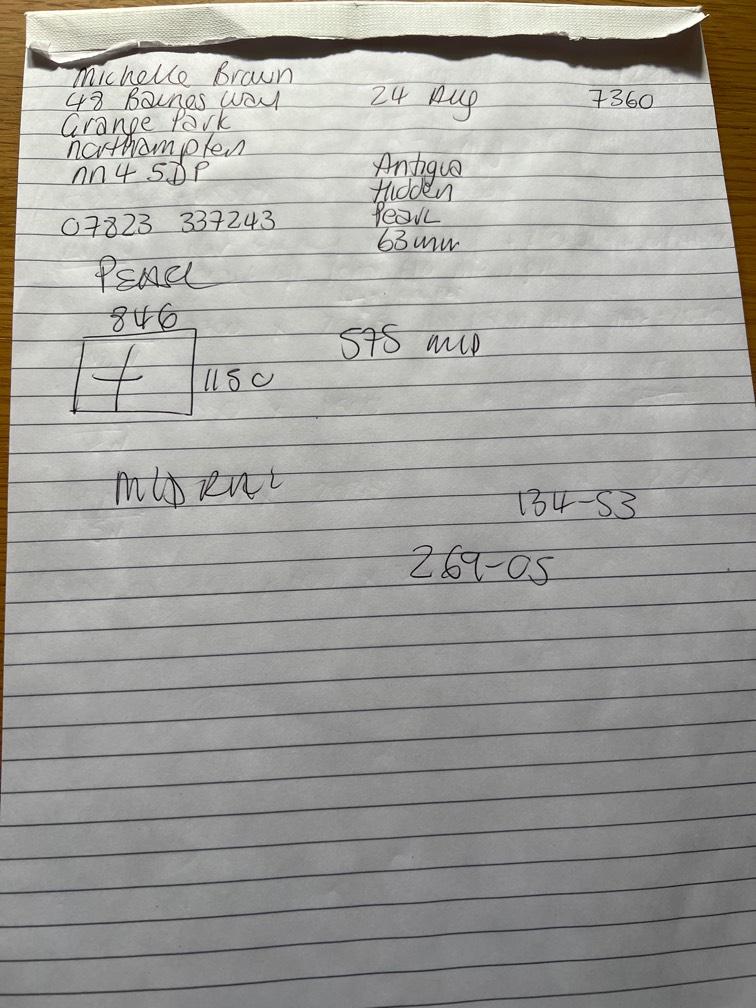 Michelle Brown
48 Baines Way
Grange Park
Northampton
NN4 5DP
07823 337243
24 Aug
7360
Antigua
Hidden
Pearl
63mm
PEARL
846
1150
575 MID
MID RAIL
134-53
269-05